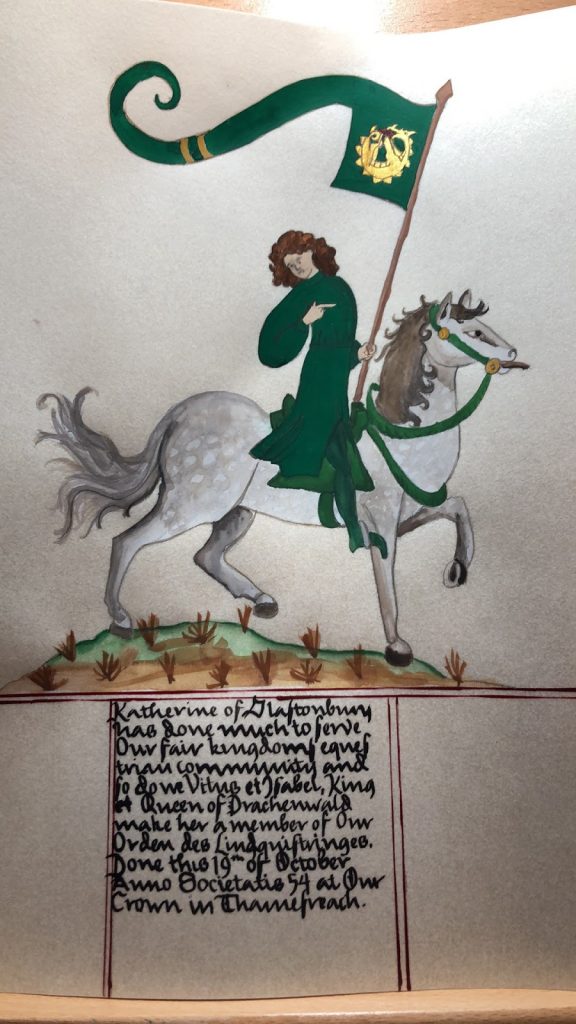 Katherine of Glastonbury
has done much to serve
Our fair kingdoms eques
trian community and
so done Vitus et Isabel, King
et Queen of Drachenwald
make her a member of Our
Orden des Lindquistringes.
Done this 19th of October
Anno Societatis 54 at Our
Crown in Thamesreach.